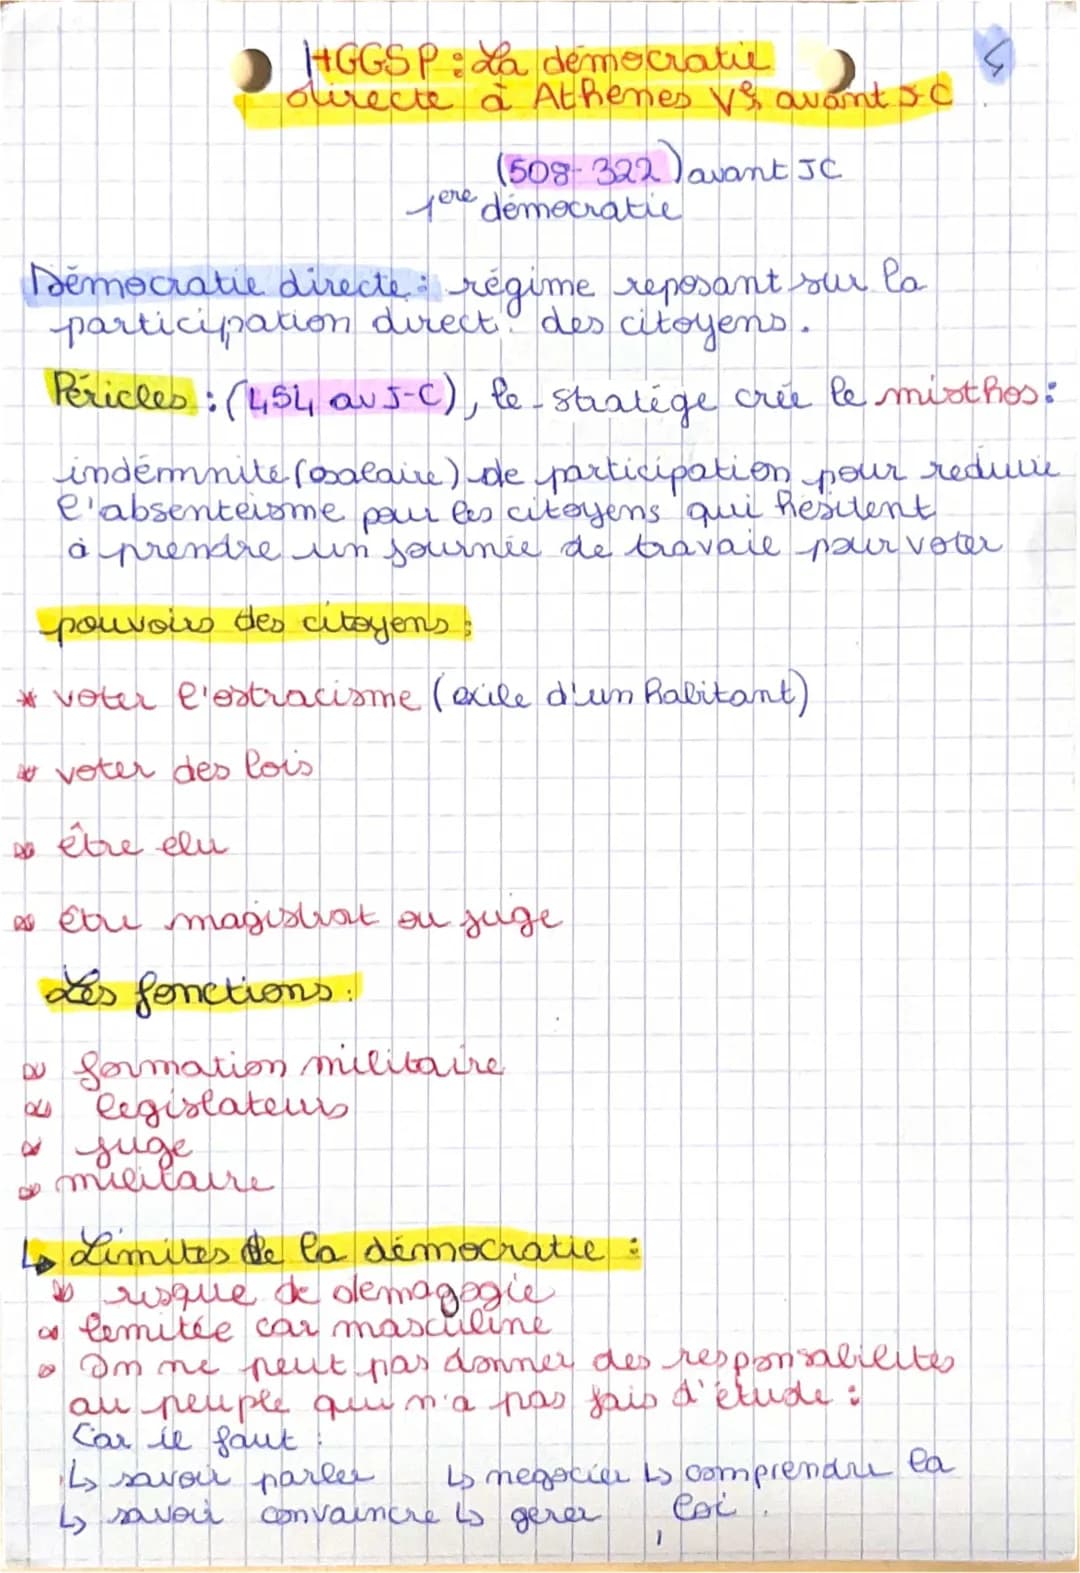 HGGSP : La démocratie
directe à Athènes Vs avant J-C
(508-322) avant JC
1ere démocratie
Démocratie directe : régime reposant sur la
participation direct. des citoyens.
Péricles : (454 av J-C), le stratége crée le misthos :
indémnité (salaire) de participation pour reduire
l'absenteisme pour les citoyens qui hésitent
à prendre un journée de travaie pour voter
pouvoirs des citoyens :
* voter l'ostracisme (exile d'un habitant)
* voter des lois
* être elu
* être magistrat ou juge
Les fonctions :
* formation militaire
* legislateurs
* juge
* militaire
↳ Limites de la démocratie :
* risque de demagogie
* limitée car masculine
* On ne peut pas donner des responsabilités
au peuple qui n'a pas fais d'étude :
Car il faut :
↳ savoir parler ↳ negocier ↳ comprendre la
↳ savoir convaincre ↳ gerer loi.